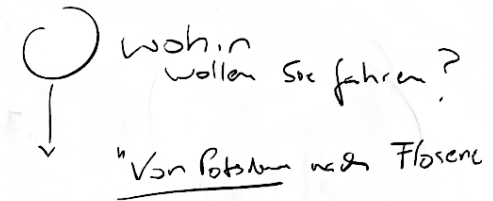 wohin
wollen Sie fahren?
"Von Potsdam nach Florenz